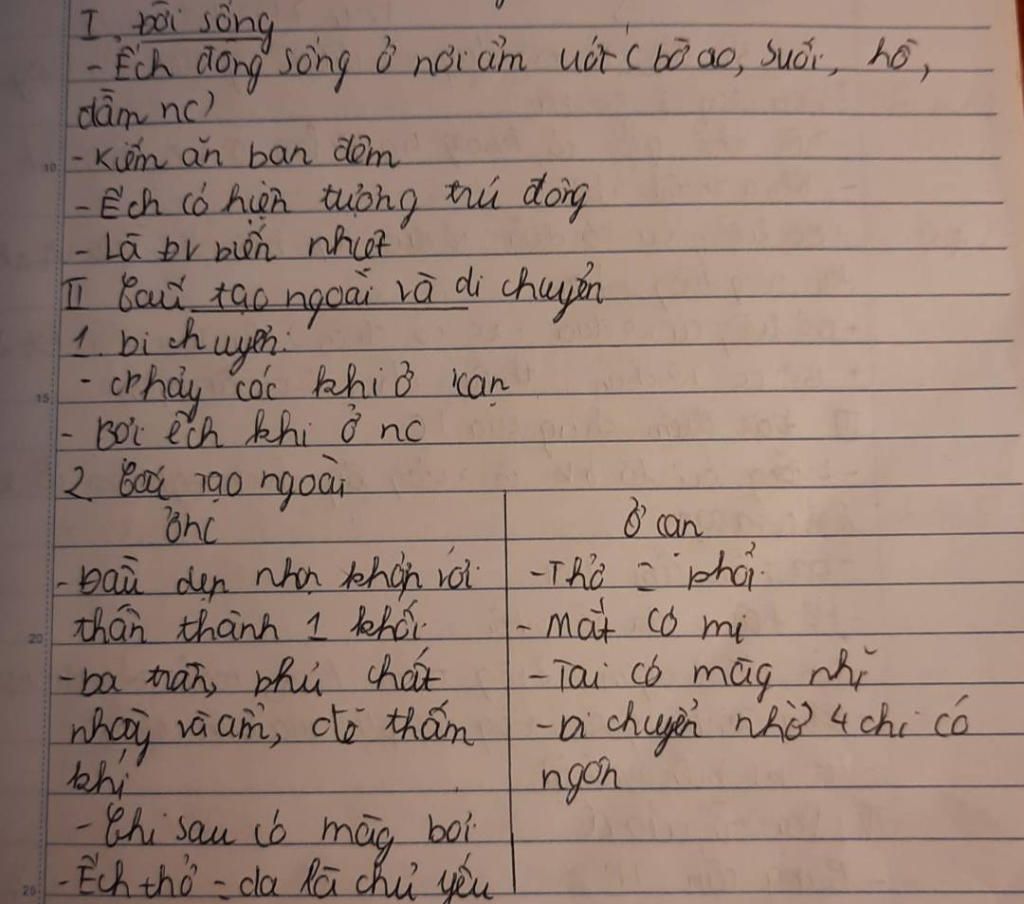 I, Đời sống
- Ếch đồng sống ở nơi ẩm ướt (bờ ao, suối, hồ,
đầm nc)
- Kiếm ăn ban đêm
- Ếch có hiện tượng trú đông
- Là ĐV biến nhiệt
II Cấu tạo ngoài và di chuyển
1. Di chuyển:
- Nhảy cóc khi ở cạn
- Bơi ếch khi ở nc
2 Cấu tạo ngoài
Ở nc
Ở cạn
- Đầu dẹp nhọn khớp với
thân thành 1 khối
- Da trần, phủ chất
nhày và ẩm, dễ thấm
khí
- Chi sau có màg bơi
- Ếch thở = da là chủ yếu
- Thở = phổi
- Mắt có mi
- Tai có màg nhĩ
- Di chuyển nhờ 4 chi có
ngón